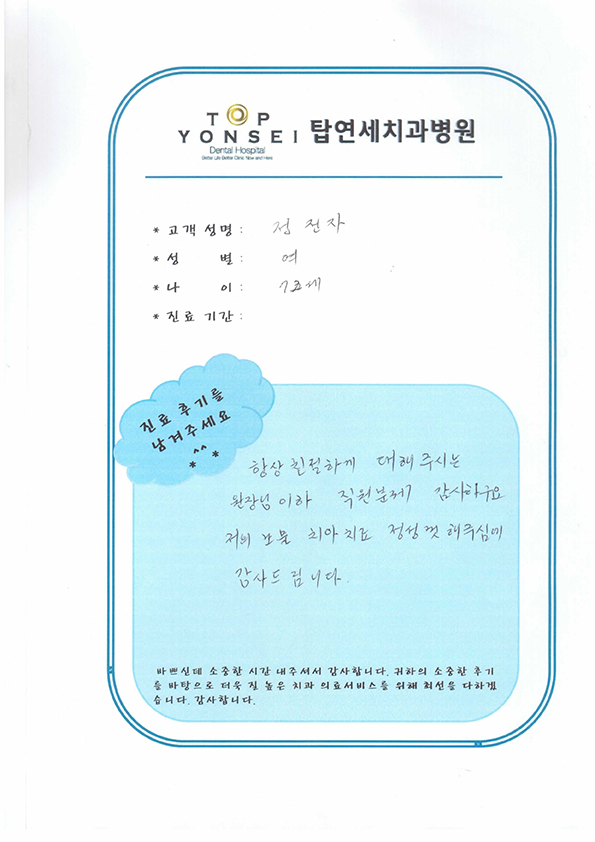 TOP
YONSEI 탑연세치과병원
Dental Hospital
Better Life Better Clinic Now and Here
* 고객 성명 : 정 진자
* 성 별 : 여
* 나 이 : 73세
* 진료 기간 :
진료 후기를
남겨주세요
^^
* *
항상 친절하게 대해 주시는
원장님 이하 직원분께 감사하구요
저의 보물 치아 치료 정성껏 해주심에
감사드립니다.
바쁘신데 소중한 시간 내주셔서 감사합니다. 귀하의 소중한 후기
를 바탕으로 더욱 질 높은 치과 의료서비스를 위해 최선을 다하겠
습니다. 감사합니다.